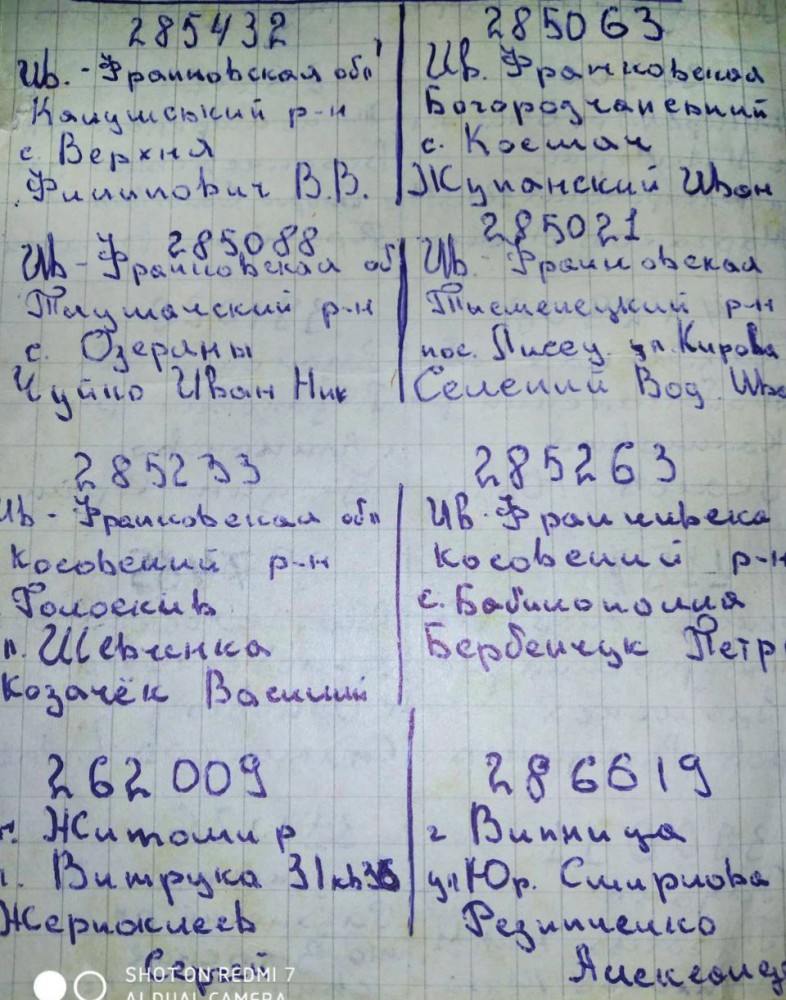 285432
Ив.-Франковская обл
Калушський р-н
с. Верхня
Филипович В.В.
285063
Ив. Франковская
Богородчанський
с. Космач
Жупанский Иван
285088
Ив-Франковская об
Тлумачский р-н
с. Озеряны
Чуйко Иван Ник
285021
Ив. Франковская
Тисменецкий р-н
пос. Лисец ул. Кирова
Селепий Вод. Ива
285233
Ив-Франковская обл
Косовский р-н
п. Шевченка
Козачёк Василий
285263
Ив. Франкивска
Косовский р-н
с. Бабинополля
Бербенчук Петр
262009
г. Житомир
Витрука 31 кв 36
Жерноклеев
Сергей
286619
г Винница
ул Юр. Смирнова
Резниченко
SHOT ON REDMI 7
AI DUAL CAMERA